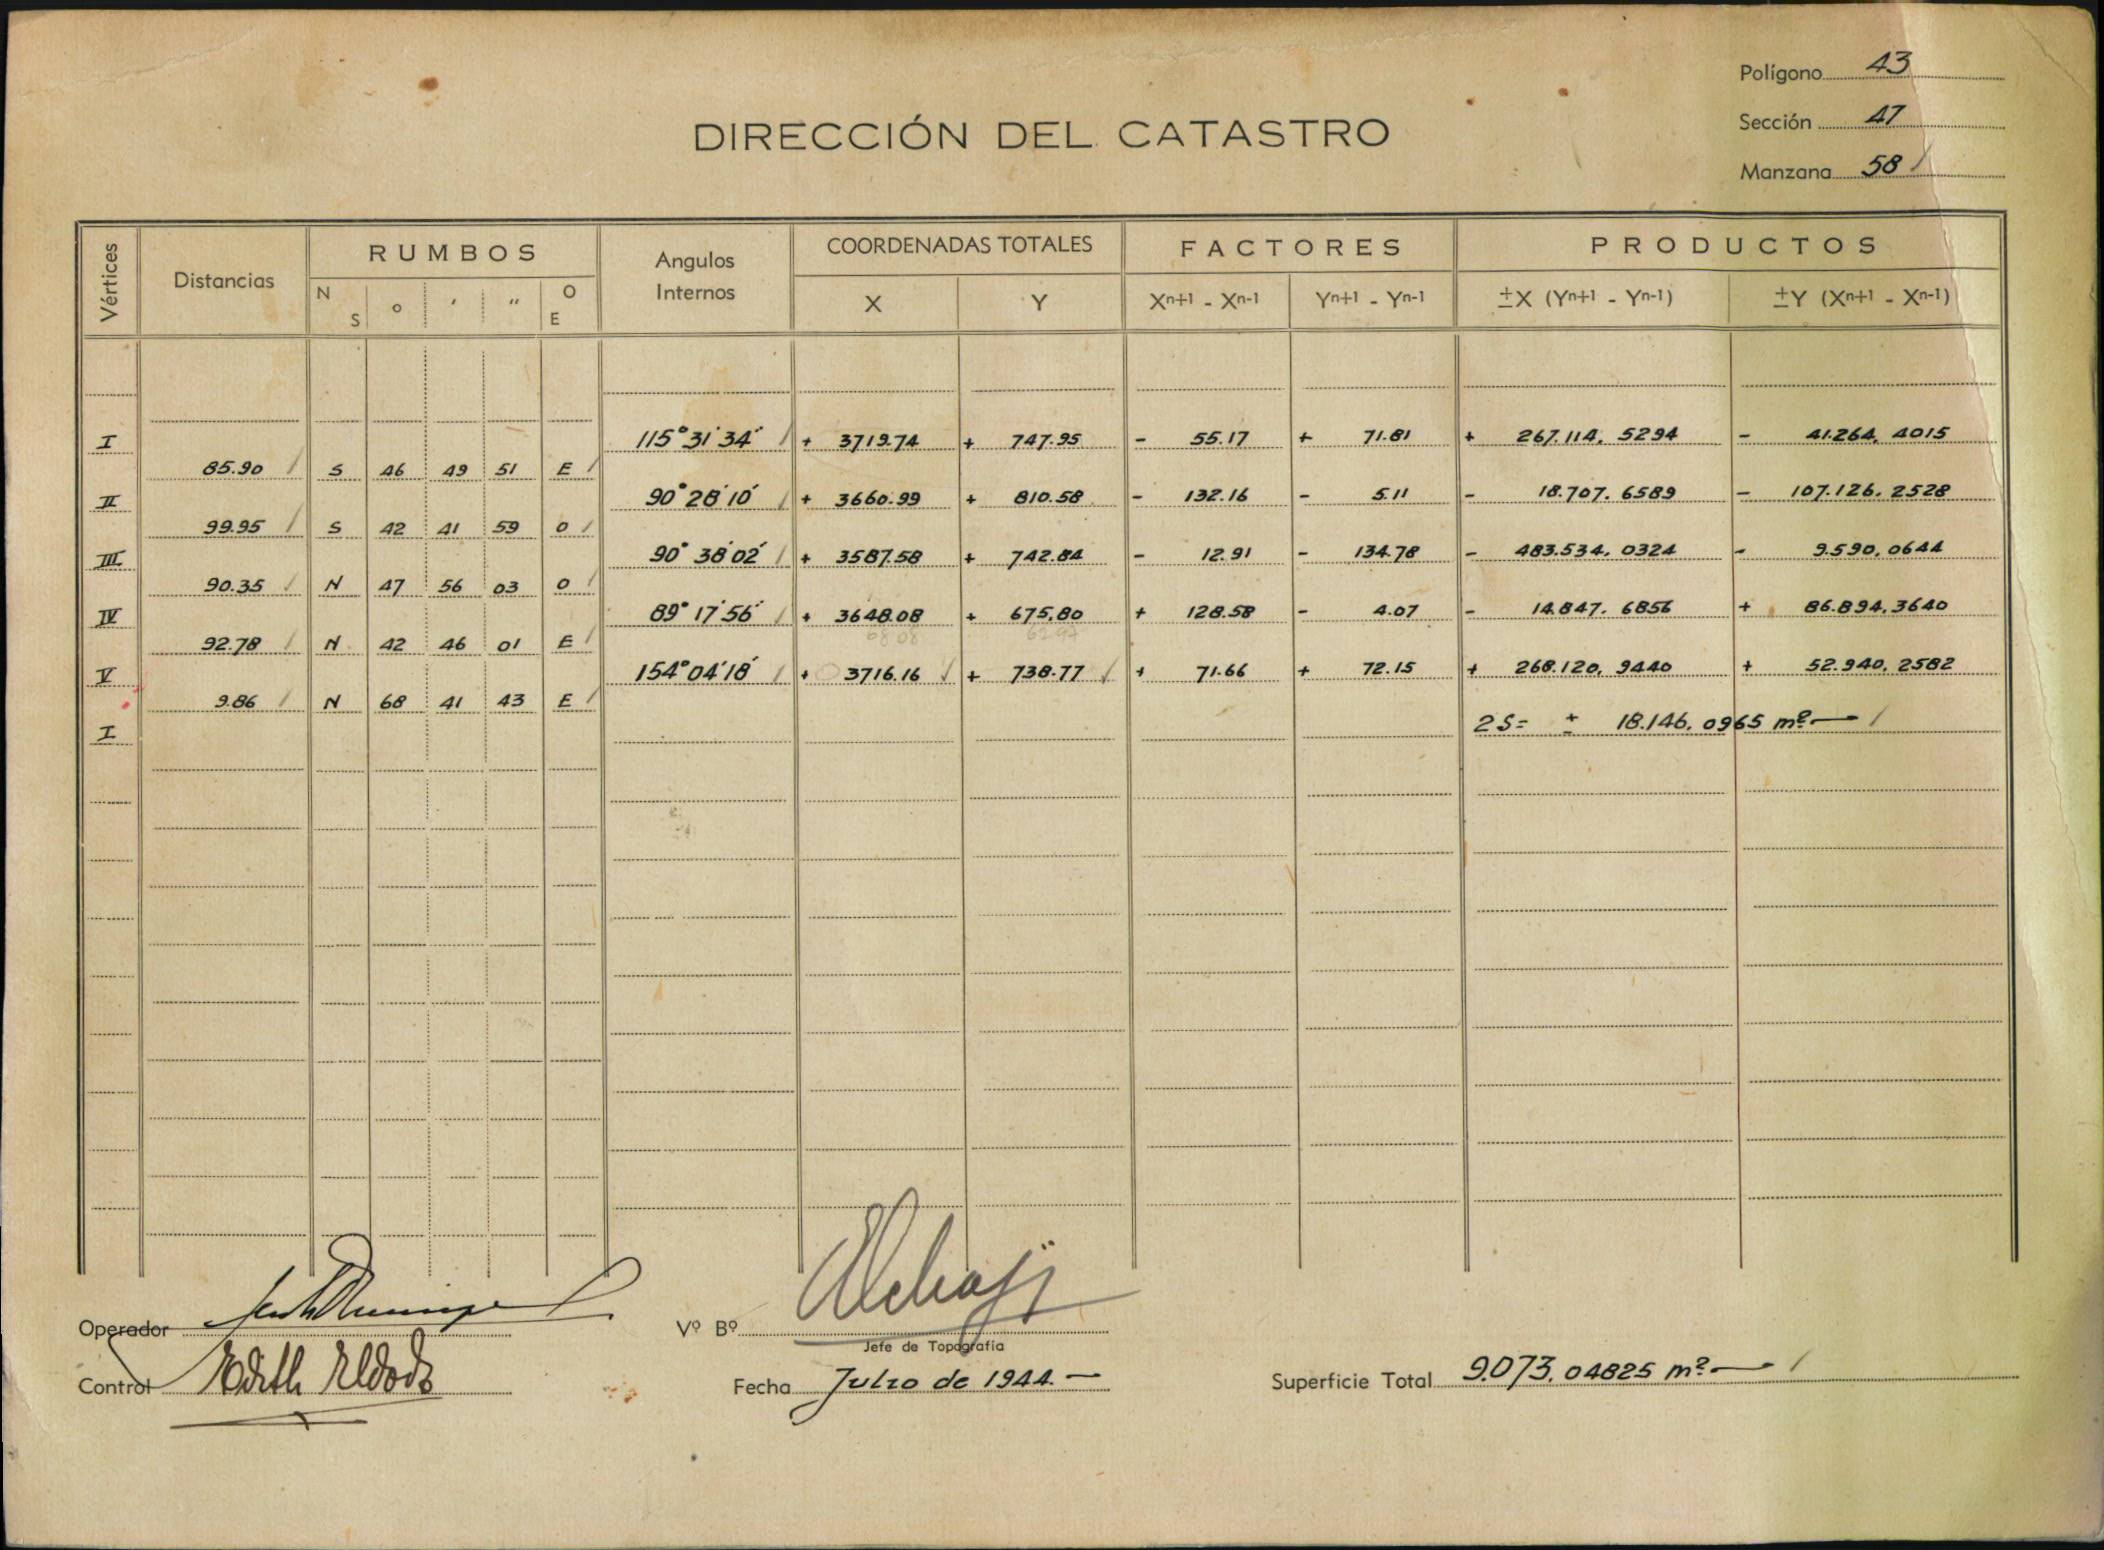 Polígono 43
Sección 47
Manzana 58
DIRECCIÓN DEL CATASTRO
Vértices Distancias RUMBOS Angulos Internos COORDENADAS TOTALES FACTORES PRODUCTOS
N S ° ′ ″ O E X Y Xn+1 - Xn-1 Yn+1 - Yn-1 ±X (Yn+1 - Yn-1) ±Y (Xn+1 - Xn-1)
I 115°31'34" + 3719.74 + 747.95 - 55.17 + 71.81 + 267.114,5294 - 41.264,4015
85.90 S 46 49 51 E
II 90°28'10" + 3660.99 + 810.58 - 132.16 - 5.11 - 18.707.6589 - 107.126.2528
99.95 S 42 41 59 O
III 90°38'02" + 3587.58 + 742.84 - 12.91 - 134.78 - 483.534,0324 - 9.590,0644
90.35 N 47 56 03 O
IV 89°17'56" + 3648.08 + 675,80 + 128.58 - 4.07 - 14.847.6856 + 86.894,3640
92.78 N 42 46 01 E
V 154°04'18" + 3716.16 + 738.77 + 71.66 + 72.15 + 268.120,9440 + 52.940,2582
9.86 N 68 41 43 E
I 2S= ± 18.146,0965 m²
Operador
Control Edith
Vº Bº
Jefe de Topografía
Fecha Julio de 1944.-
Superficie Total 9.073,04825 m²